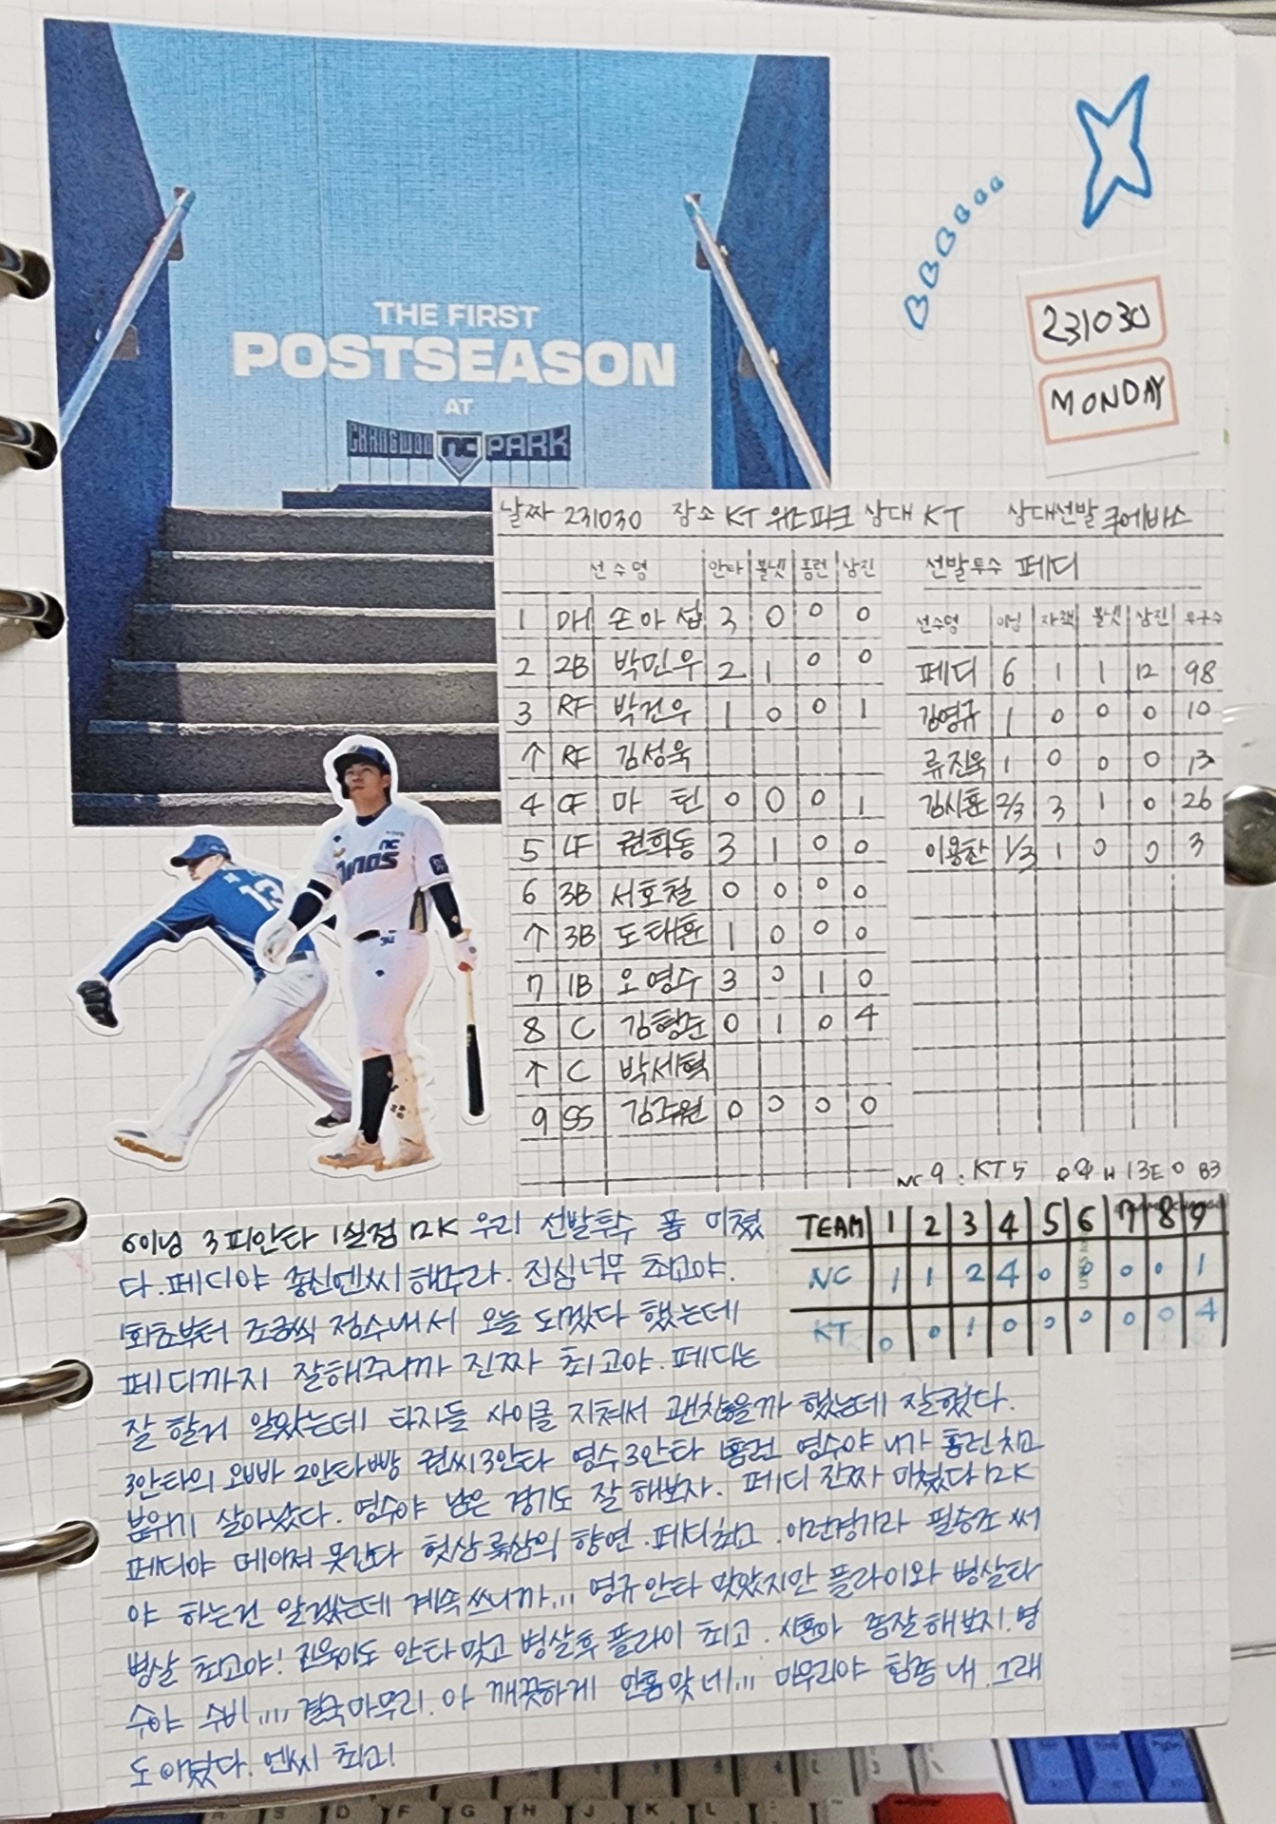 THE FIRST
POSTSEASON
AT
CHANGWON NC PARK
231030
MONDAY
날짜 231030 장소 KT 위즈파크 상대 KT 상대선발 쿠에바스
선수명 안타 볼넷 홈런 삼진
1 DH 손아섭 3 0 0 0
2 2B 박민우 2 1 0 0
3 RF 박건우 1 0 0 1
↑ RF 김성욱
4 CF 마틴 0 0 0 1
5 LF 권희동 3 1 0 0
6 3B 서호철 0 0 0 0
↑ 3B 도태훈 1 0 0 0
7 1B 오영수 3 0 1 0
8 C 김형준 0 1 0 4
↑ C 박세혁
9 SS 김주원 0 0 0 0
선발투수 페디
선수명 이닝 자책 볼넷 삼진 투구수
페디 6 1 1 12 98
김영규 1 0 0 0 10
류진욱 1 0 0 0 13
김시훈 2/3 3 1 0 26
이용찬 1/3 1 0 0 3
NC 9 : KT 5 R 9 H 13 E 0 B3
NC
Dinos
13
TEAM 1 2 3 4 5 6 7 8 9
NC 1 1 2 4 0 0 0 0 1
KT 0 0 1 0 0 0 0 0 4
6이닝 3피안타 1실점 12K 우리 선발투수 폼 미쳤
다. 페디야 종신엔씨해주라. 진심너무 최고야.
1회초부터 조금씩 점수내서 오늘 되겠다 했는데
페디까지 잘해주니까 진짜 최고야. 페디는
잘 할거 알았는데 타자들 사이클 지쳐서 괜찮을까 했는데 잘했다.
3안타의 오빠 2안타빵 권씨3안타 영수3안타 1홈런 영수야 니가 홈런치고
분위기 살아났다. 영수야 남은 경기도 잘 해보자. 페디 진짜 미쳤다 12K
페디야 메이저 못간다 헛삼 룩삼의 향연. 페디최고. 이런경기라 필승조 써
야 하는건 알겠는데 계속 쓰니까... 영규안타 맞았지만 플라이와 병살타
병살 최고야! 진욱이도 안타맞고 병살후 플라이 최고. 시훈아 좀잘해보지. 영
수야 수비.... 결국마무리. 아 깨끗하게 만홈맞네... 마무리야 힘좀 내. 그래
도 이겼다. 엔씨 최고!